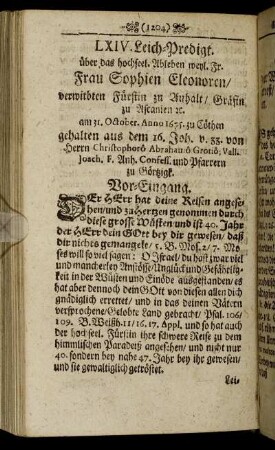 (1204)
LXIV. Leich-Predigt.
über das hochseel. Ableben weyl. Fr.
Frau Sophien Eleonoren/
verwibten Fürstin zu Anhalt/ Gräfin
zu Ascanien ꝛc.
am 31. October. Anno 1675. zu Cöthen
gehalten aus dem 16. Joh. v. 33. von
Herrn Christophoro Abrahamo Grotio, Vall.
Joach. F. Anh. Confess. und Pfarrern
zu Görtzigk.
Vor-Eingang.
DEr HErr hat deine Reisen angese-
hen/ und zu Hertzen genommen durch
diese grosse Wüsten und ist 40. Jahr
der HErr dein GOtt bey dir gewesen/ daß
dir nichts gemangelt/ 5. B. Mos. 2/ 7. Mo-
ses will so viel sagen: O Israel/ du hast zwar viel
und mancherley Anstösse/ Unglück und Gefährlig-
keit in der Wüsten und Einöde ausgestanden/ es
hat aber dennoch dein GOtt von diesen allen dich
gnädiglich errettet/ und in das deinen Vätern
versprochene/ Gelobte Land gebracht/ Psal. 106/
109. B. Weißh. 11/ 16. 17. Appl. und so hat auch
der hochseel. Fürstin ihre schwere Reise zu dem
himmlischen Paradeiß angesehen/ und nicht nur
40. sondern bey nahe 47. Jahr bey ihr gewesen/
und sie gewaltiglich getröstet.
Lei-